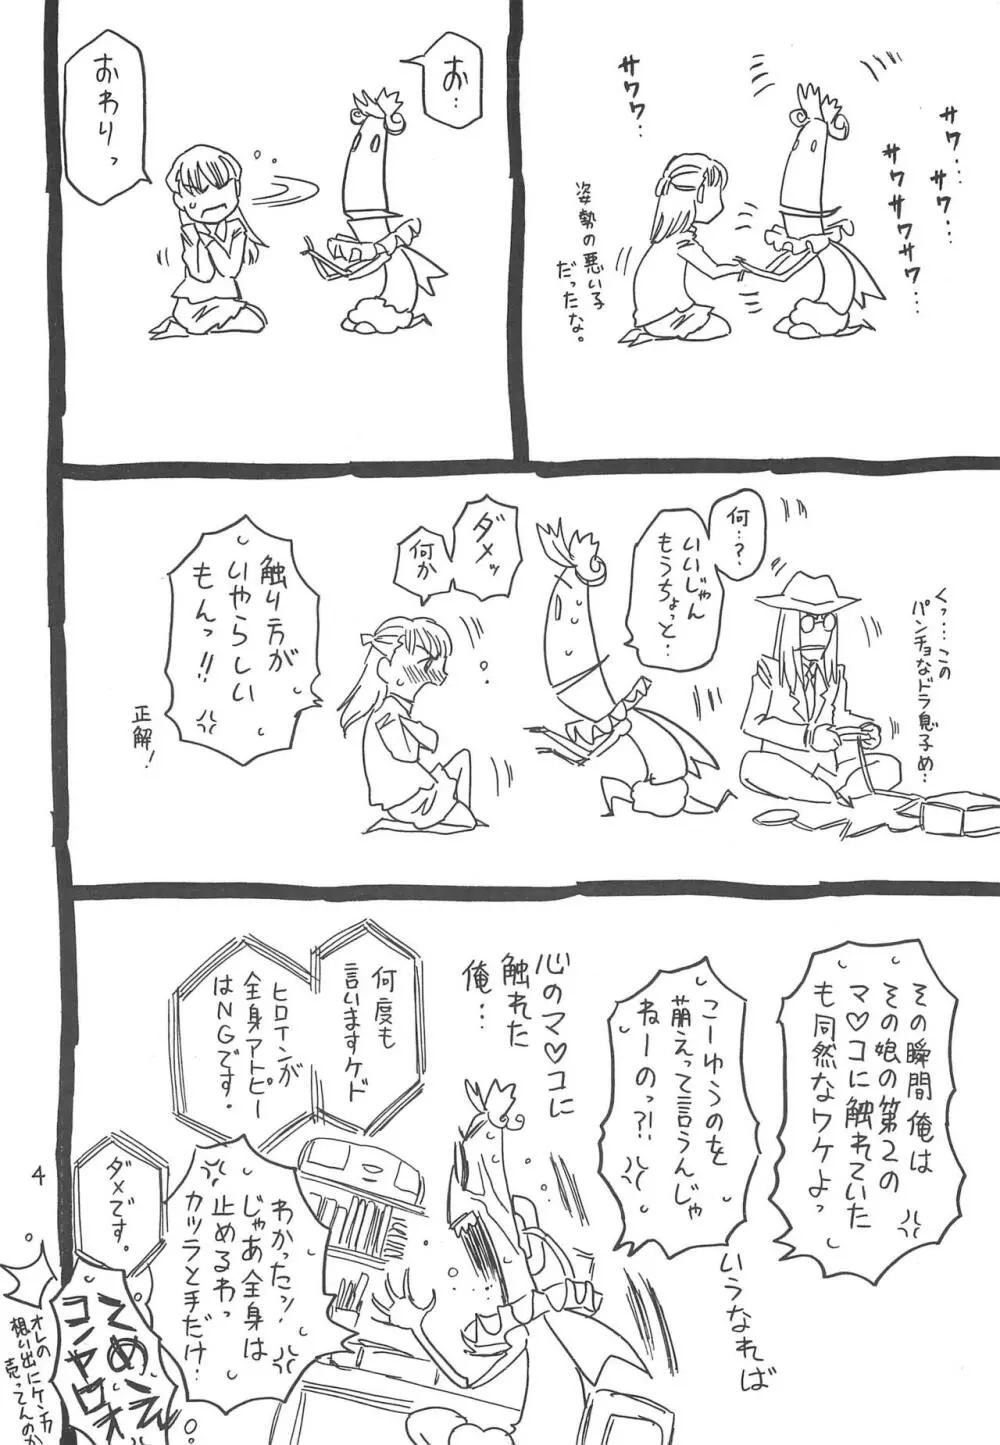 サワワ…
サワ…
サワ…
サワサワサワ…
姿勢の悪い子
だったな。
お…
おわりっ
くっ…この
パンチョなドラ息子め…
何…?
いいじゃん
もうちょっと…
ダメッ
何か
触り方が
いやらしい
もんっ!!
正解!
その瞬間俺は
その娘の第2の
マ♡コに触れていた
も同然なワケよっ
こーゆうのを
萌えって言うんじゃ
ねーのっ?!
いうなれば
心のマ♡コに
触れた
俺…
何度も
言いますケド
ヒロインが
全身アトピー
はNGです。
わかったッ!
じゃあ全身は
止めるわっ
カツラと手だけ
ダメです。
てめェ
コンヤロオ
オレの
想い出にケンカ
売ってんのか
4